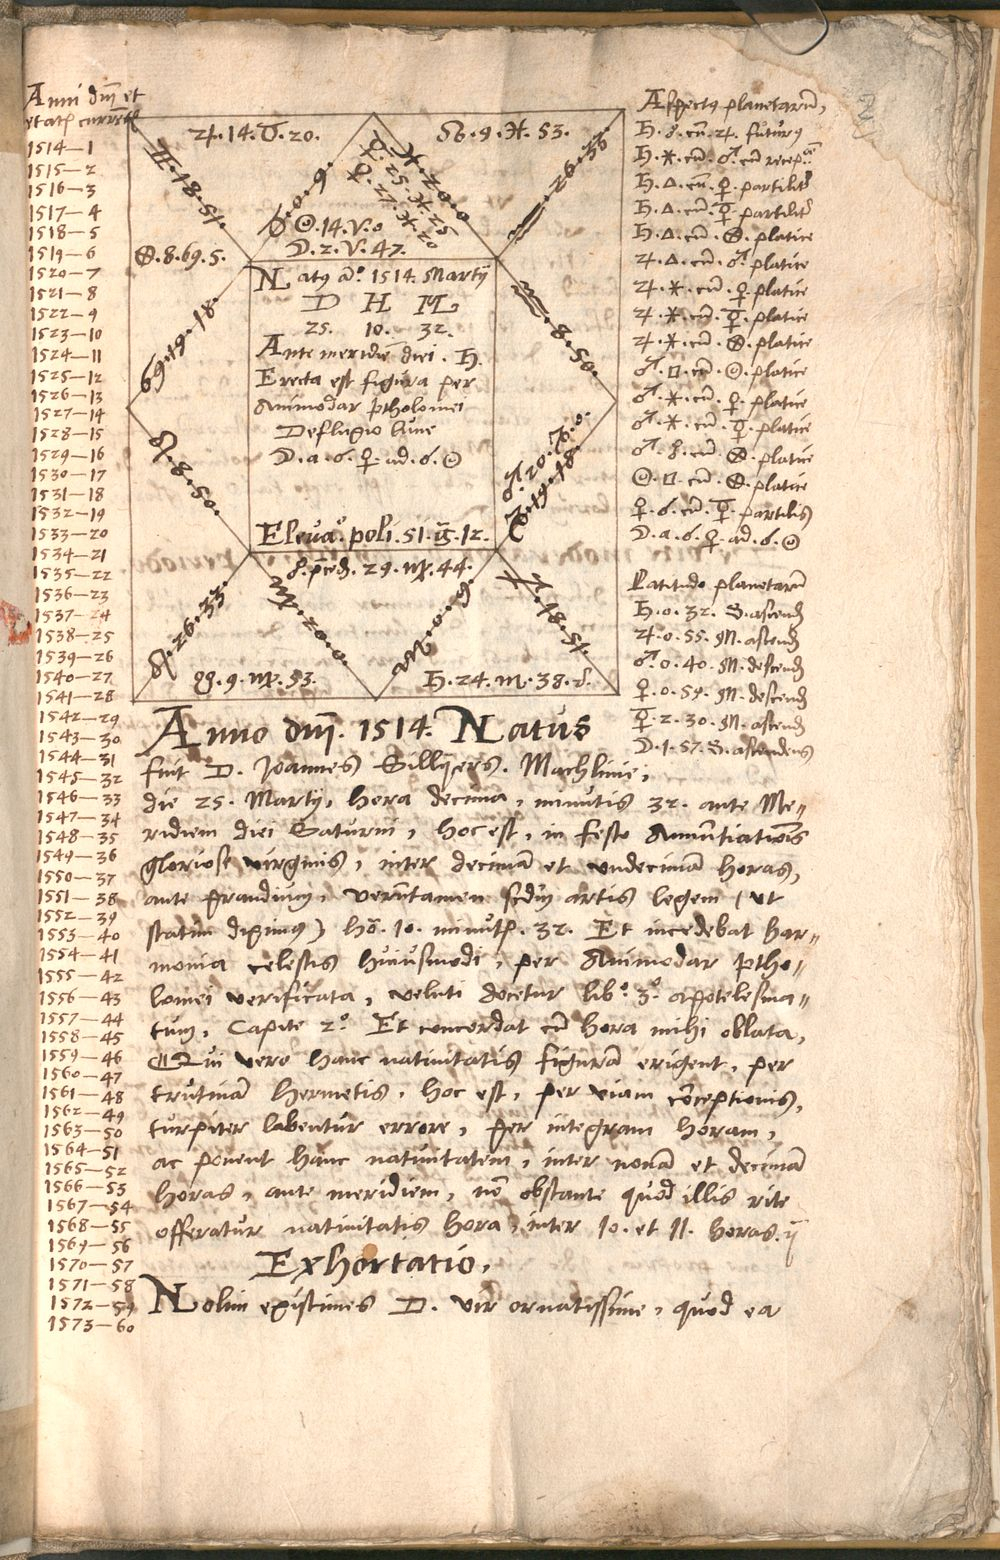 Anni dnī et
etatꝭ currētꝭ
1514—1
1515—2
1516—3
1517—4
1518—5
1519—6
1520—7
1521—8
1522—9
1523—10
1524—11
1525—12
1526—13
1527—14
1528—15
1529—16
1530—17
1531—18
1532—19
1533—20
1534—21
1535—22
1536—23
1537—24
1538—25
1539—26
1540—27
1541—28
1542—29
1543—30
1544—31
1545—32
1546—33
1547—34
1548—35
1549—36
1550—37
1551—38
1552—39
1553—40
1554—41
1555—42
1556—43
1557—44
1558—45
1559—46
1560—47
1561—48
1562—49
1563—50
1564—51
1565—52
1566—53
1567—54
1568—55
1569—56
1570—57
1571—58
1572—59
1573—60
♃.14.♉.20.
☊.9.♓.53.
♊.18.51.
♉.0.9.
☿.25.♓.25
♀.27.♓.20
♓.20.0.
♒.26.33
☉.14.♈.0
☽.2.♈.47.
⊕.8.♋.5.
♋.19.18.
♒.8.50.
Natꝰ aº. 1514. Martij
D H M
25. 10. 32.
Ante meridiē diei . ♄.
Erecta est figura per
Animodar ptholomei
Defluxio lune
☽.a.☌.♀.ad.☌.☉
Elevaº. poli.51.g̃.12.
♌.8.50.
♂.20.♑.0.
♑.19.18.
☍.preced. 29.♍.44.
♌.26.33
♍.20.0.
♎.0.9.
♐.18.51.
☋.9.♍.53.
♄.24.♏.38.
Aspectꝰ planetarū,
♄.☍.cū.♃. futurꝰ
♄.⚹.cū.♂.cū recep.
♄.△.cū.♀.partilit
♄.△.cū.☿.partilit
♄.△.cū.⊕.platice
♃.△.cū.♂.platice
♃.⚹.cū.♀.platice
♃.⚹.cū.☿.platice
♃.⚹.cū.⊕.platice
♂.□.cū.☉.platice
♂.⚹.cū.♀.platice
♂.⚹.cū.☿.platice
♂.☍.cū.⊕.platice
☉.□.cū.⊕.platice
♀.☌.cū.☿.partilis
☽.a.☌.♀.ad.☌.☉
Latitudo planetarū
♄.0.32. S.ascend
♃.0.55. M.ascend
♂.0.40. M.descend
♀.0.59. M.descend
☿.2.30. M.ascend
☽.1.57.S.ascendens
Anno dnī. 1514. Natus
fuit D. Joannes Gillÿcers. Machlinie,
die 25. Martij, hora decima, minutis 32. ante Me⸗
ridiem diei Saturni, hoc est, in festo Annūtiationis
gloriose virginis, inter decimā et undecimā horas,
ante prandium, verūtamen scdm̄ artis legem (ut
statim diximꝰ) ho. 10. minutꝭ. 32. Et incedebat har⸗
monia celestis huiusmodi, per Animodar ptho⸗
lomei verificata, veluti docetur libº. 3º. apotelesma⸗
tum, Capite 2º. Et concordat cū hora mihi oblata,
Qui vero hanc nativitatis figurā erigent, per
trutinā hermetis, hoc est, per viam cōceptionis,
turpiter labentur errore, per integram horam,
ac ponent hanc nativitatem, inter nonā et decimā
horas, ante meridiem, nō obstante quod illis rite
offeratur nativitatis hora, inter 10. et 11. horas.
Exhortatio,
Nolim existimes D. vir ornatissime, quod ea